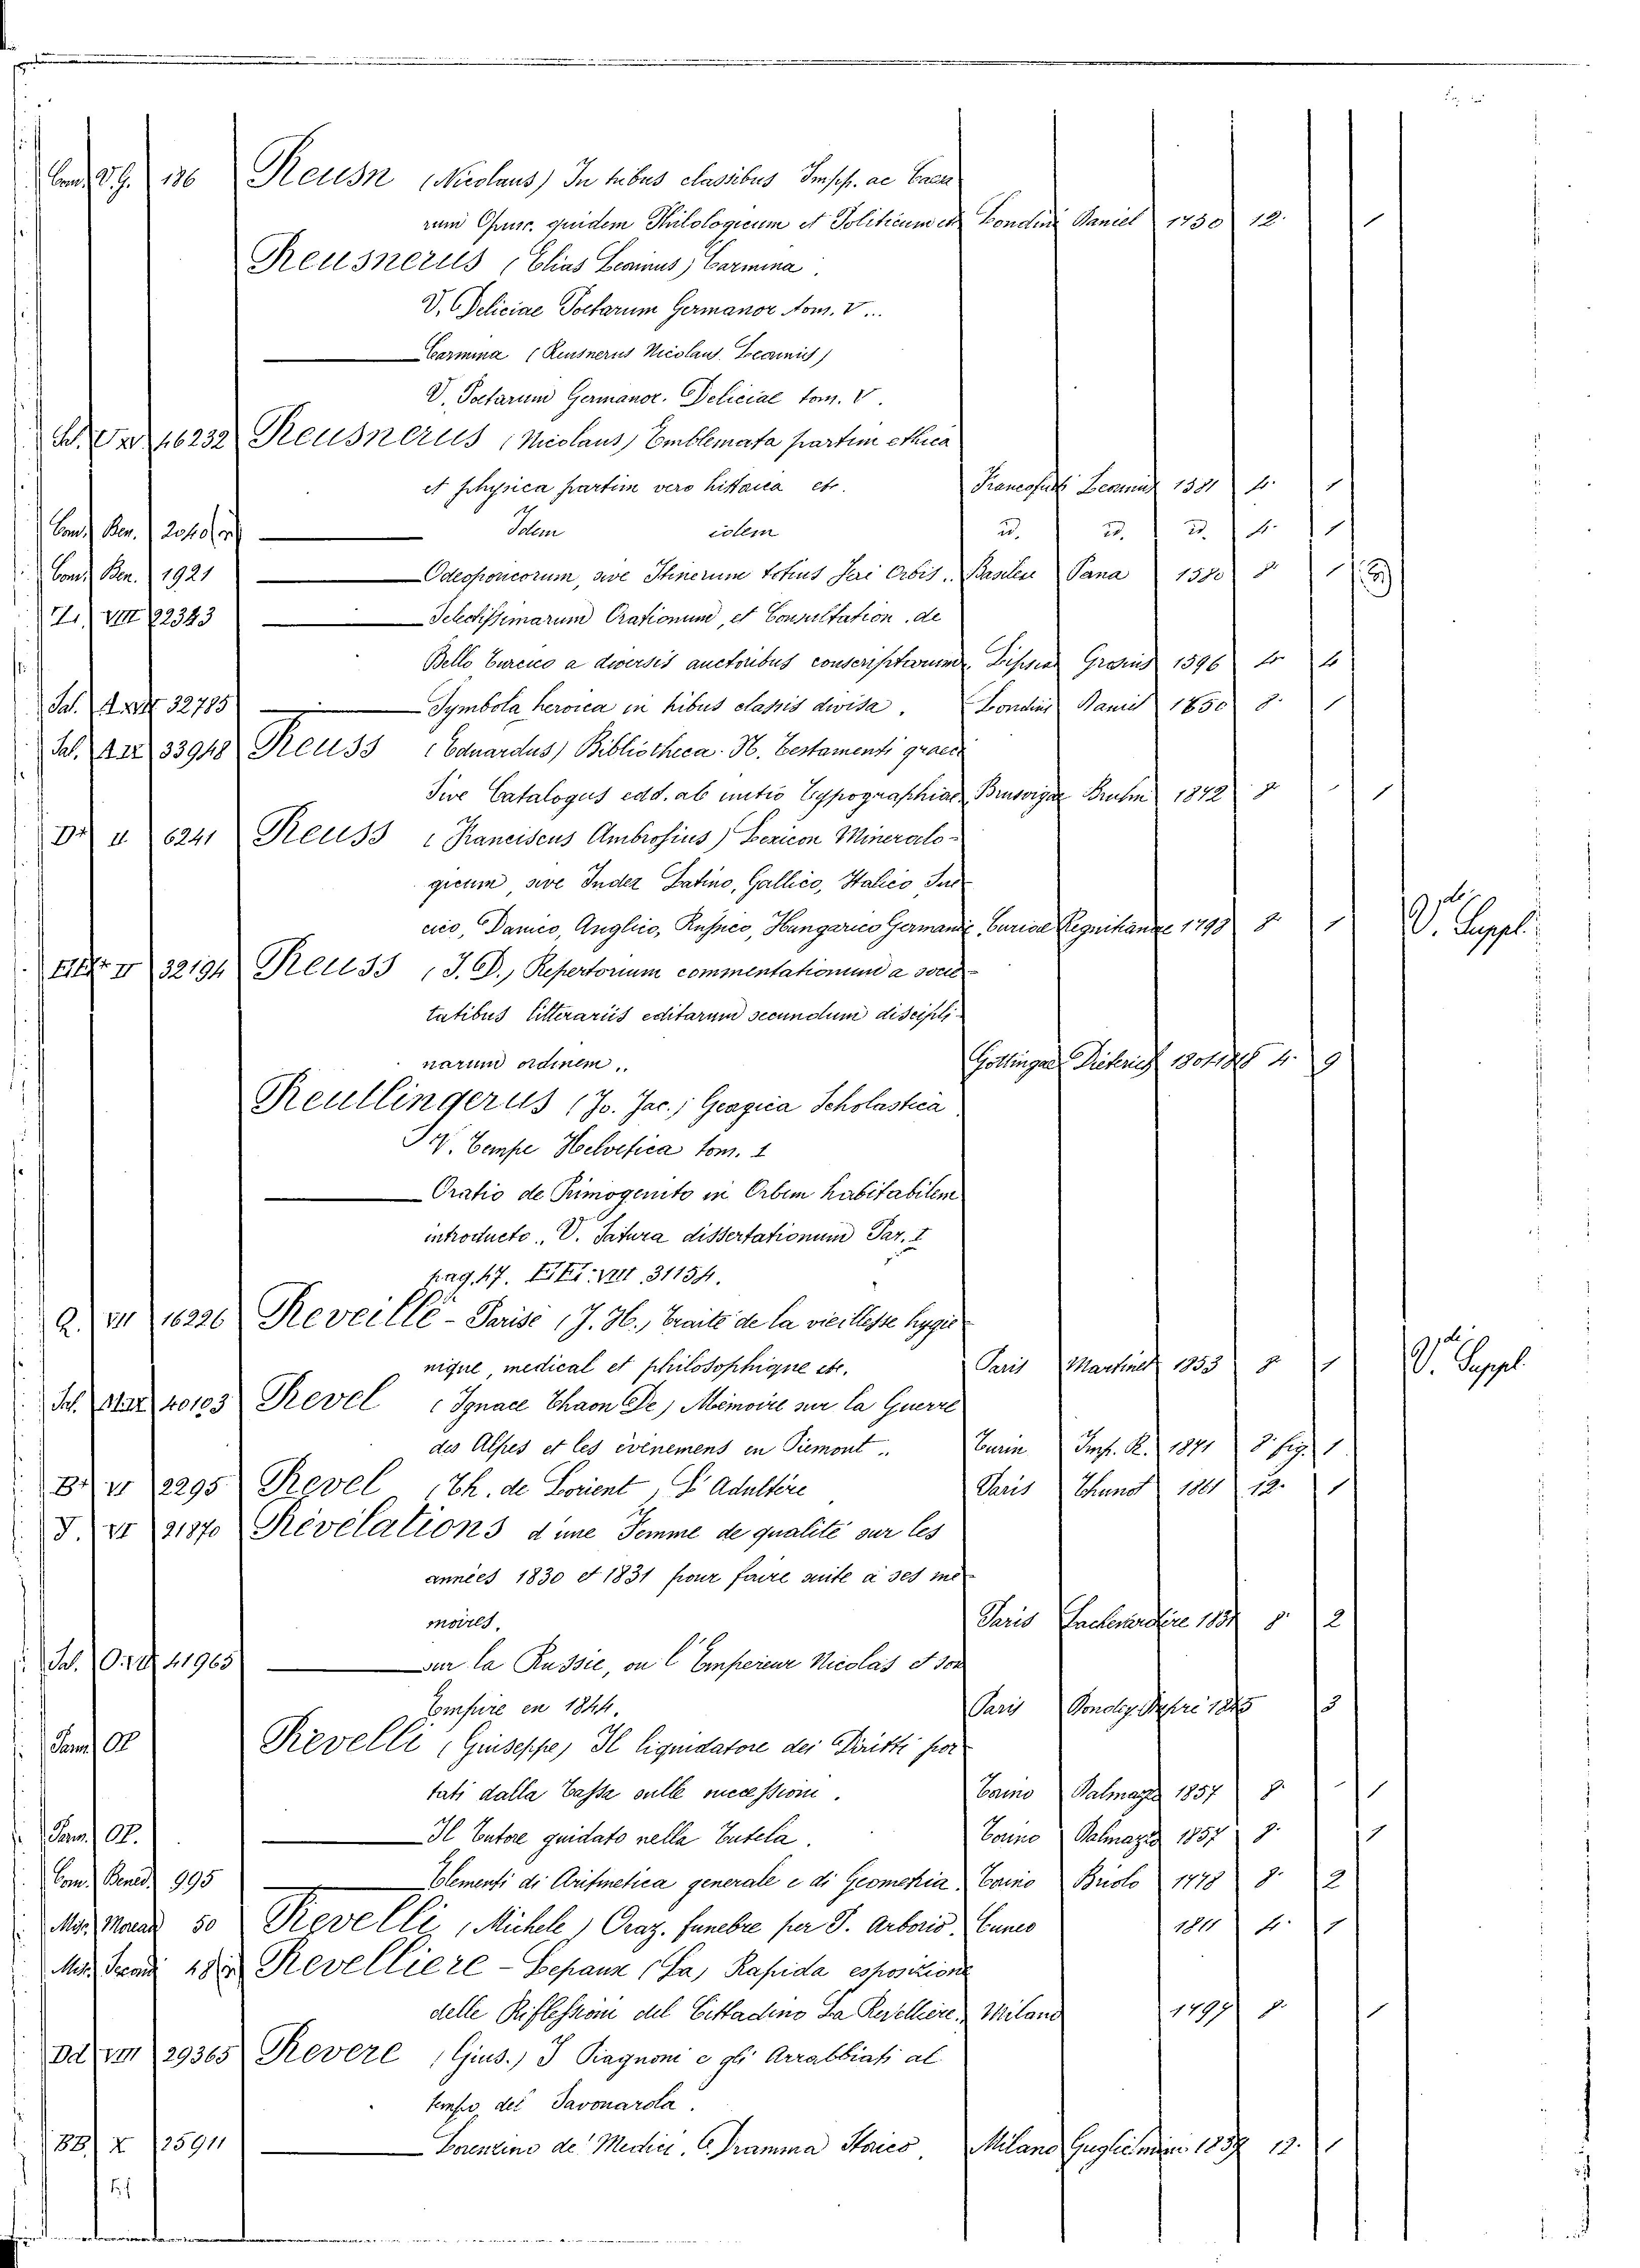 186 Reusn (Nicolaus) In tribus classibus Impp. ac
rum Opusc. quidem Philologicum et Politicum etc Londini Daniel 1730 12. 1
Reusnerus (Elias Leorinus) Carmina.
V. Deliciae Poetarum Germanor tom. V...
Carmina (Reusnerus Nicolaus Leorinus)
V. Poetarum Germanor. Deliciae tom. V.
46232 Reusnerus (Nicolaus) Emblemata partim ethica
et physica partim vero historica etc. Francofurti 1581 4. 1
Com. Ben. Idem idem id. id. id. 4. 1
Com. Ben. 1921 Odeoporicorum, sive Itinerum totius Orbis.. Basileae Pana 1580 8 1
VIII 22343 Selectissimarum Orationum, et Consultation. de
Bello Turcico a diversis auctoribus conscriptarum. Lipsiae Grosius 1596 4 4
Sal. 32785 Symbola heroica in tribus classis divisa. Londini Daniel 1650 8. 1
Sal. 33948 Reuss (Eduardus) Bibliotheca N. Testamenti graeci
Sive Catalogus edd. ab initio Typographiae Brusvigae Bruhn 1872 8 1
Dd II 6241 Reuss (Franciscus Ambrosius) Lexicon Mineralo-
gicum, sive Index Latino, Gallico, Italico Sue
cico, Danico, Anglico, Russico, Hungarico Germanic. Curiae Regnitianae 1798 8 1 V. di Suppl.
II 32194 Reuss (J. D.) Repertorium commentationum a socie-
tatibus litterariis editarum secundum discipli-
narum ordinem.. Gottingae Dieterich 4. 9
Reutlingerus (Jo. Jac.) Geogica Scholastica
V. Tempe Helvetica tom. 1
Oratio de Primogenito in Orbem habitabilem
introducto.. V. Satura dissertationum Par. I
pag. 47. VIII 31154.
Q. VII 16226 Reveillé-Parise (J. H.) Traité de la vieillesse hygie-
nique, medical et philosophique etc. Paris Martinet 1853 8 1 V. di Suppl.
Sal. 40103 Revel (Ignace Thaon De) Mémoire sur la Guerre
des Alpes et les évènemens en Piemont.. Turin Imp. R. 1871 8. fig. 1
VI 2295 Revel (Th. de Lorient, L'Adultère Paris Thunot 1861 12. 1
VI 21870 Révélations d'une Femme de qualité sur les
années 1830 et 1831 pour faire suite à ses mé-
moires. Paris Lachevardière 1831 8. 2
Sal. 41965 sur la Russie, ou l'Empereur Nicolas et son
Empire en 1844. Paris Dondey-Dupré 1845 3
Revelli (Giuseppe) Il liquidatore dei Diritti por-
tati dalla Tassa sulle successioni. Torino Dalmazzo 1857 8. 1
Il Tutore guidato nella Tutela. Torino Dalmazzo 1857 8. 1
Com. Bened. 995 Elementi di Aritmetica generale e di Geometria Torino Briolo 1778 8. 2
Mis. 50 Revelli (Michele) Oraz. funebre per S. Arborio. Cuneo 1811 4. 1
Mis. Revelliere-Lepaux (La) Rapida esposizione
delle Riflessioni del Cittadino La Revelliere. Milano 1797 8. 1
Dd VIII 29365 Revere (Gius.) I Piagnoni e gli Arrabbiati al
tempo del Savonarola.
BB X 25911 Lorenzino de' Medici. Dramma Storico. Milano Guglielmini 1839 12. 1